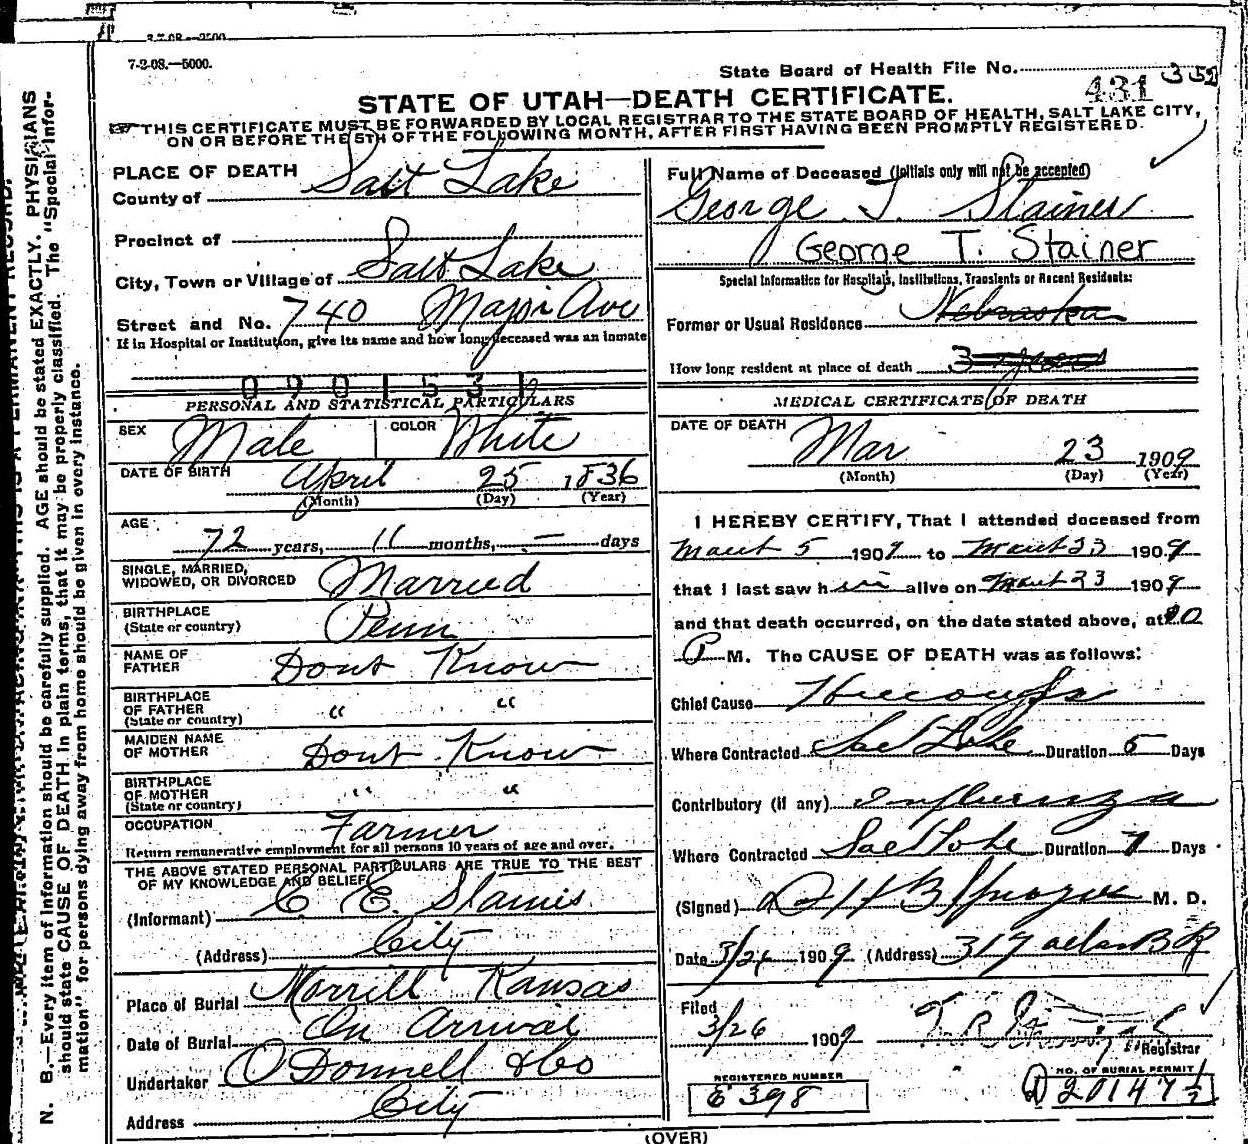 7-2-08.—5000.
State Board of Health File No. 431 352
STATE OF UTAH—DEATH CERTIFICATE.
THIS CERTIFICATE MUST BE FORWARDED BY LOCAL REGISTRAR TO THE STATE BOARD OF HEALTH, SALT LAKE CITY,
ON OR BEFORE THE 5TH OF THE FOLLOWING MONTH, AFTER FIRST HAVING BEEN PROMPTLY REGISTERED.
N. B.—Every item of information should be carefully supplied. AGE should be stated EXACTLY. PHYSICIANS
should state CAUSE OF DEATH in plain terms, that it may be properly classified. The "Special Infor-
mation" for persons dying away from home should be given in every instance.
PLACE OF DEATH
County of Salt Lake
Precinct of
City, Town or Village of Salt Lake
Street and No. 740 Ave
If in Hospital or Institution, give its name and how long deceased was an inmate
0901531
PERSONAL AND STATISTICAL PARTICULARS
SEX Male COLOR White
DATE OF BIRTH April 25 1836
(Month) (Day) (Year)
AGE 72 years, 11 months, — days
SINGLE, MARRIED,
WIDOWED, OR DIVORCED Married
BIRTHPLACE
(State or country) Penn
NAME OF
FATHER Dont Know
BIRTHPLACE
OF FATHER
(State or country) " "
MAIDEN NAME
OF MOTHER Dont Know
BIRTHPLACE
OF MOTHER
(State or country) " "
OCCUPATION Farmer
Return remunerative employment for all persons 10 years of age and over.
THE ABOVE STATED PERSONAL PARTICULARS ARE TRUE TO THE BEST
OF MY KNOWLEDGE AND BELIEF
(Informant) E. E.
(Address) City
Place of Burial Morrill Kansas
Date of Burial On Arrival
Undertaker O'Donnell & Co
Address City
Full Name of Deceased (Initials only will not be accepted)
George T. Stainer
George T. Stainer
Special Information for Hospitals, Institutions, Transients or Recent Residents:
Former or Usual Residence Nebraska
How long resident at place of death 3 years
MEDICAL CERTIFICATE OF DEATH
DATE OF DEATH Mar 23 1909
(Month) (Day) (Year)
I HEREBY CERTIFY, That I attended deceased from
March 5 1909 to March 23 1909
that I last saw him alive on March 23 1909
and that death occurred, on the date stated above, at
P M. The CAUSE OF DEATH was as follows:
Chief Cause Hiccoughs
Where Contracted Salt Lake Duration 5 Days
Contributory (if any) Influenza
Where Contracted Salt Lake Duration 7 Days
(Signed) M. D.
Date 3/24 1909 (Address)
Filed
3/26 1909
Registrar
REGISTERED NUMBER
E 398
NO. OF BURIAL PERMIT
D 20147 1/2
(OVER)